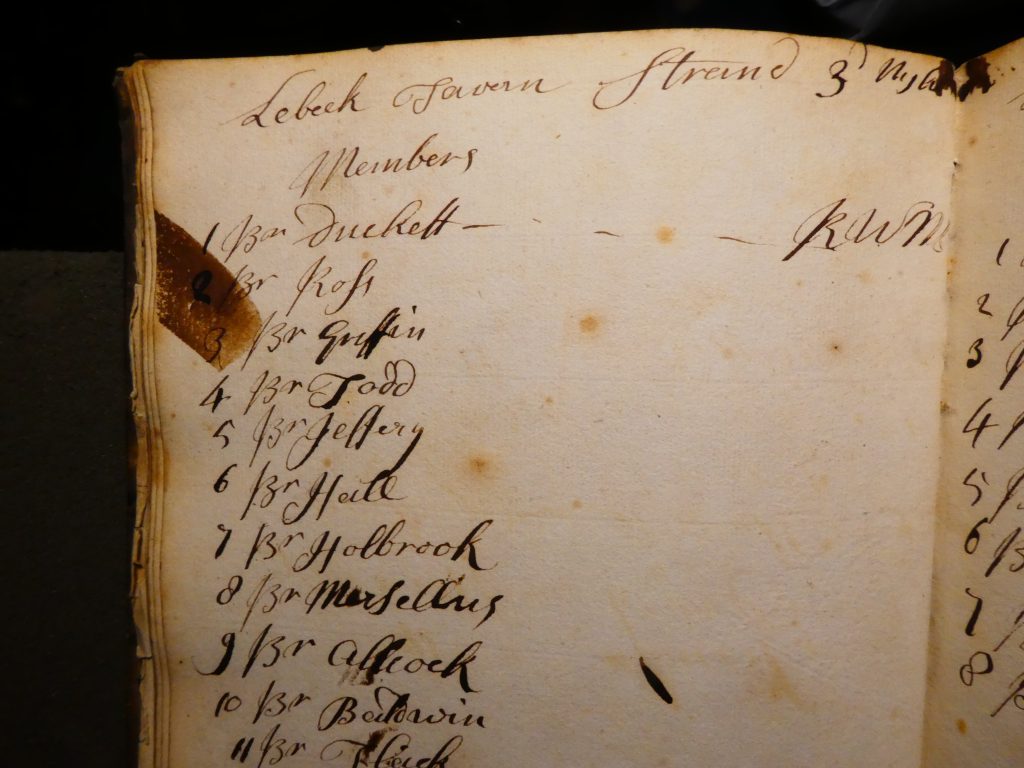 Lebeck Tavern Strand 3d
Members
1 Br Duckett - - - - RWM
2 Br Ross
3 Br Griffin
4 Br Todd
5 Br Jeffery
6 Br Hall
7 Br Holbrook
8 Br Mersellus
9 Br Allcock
10 Br Baldwin
11 Br
1
2
3
4
5
6
7
8